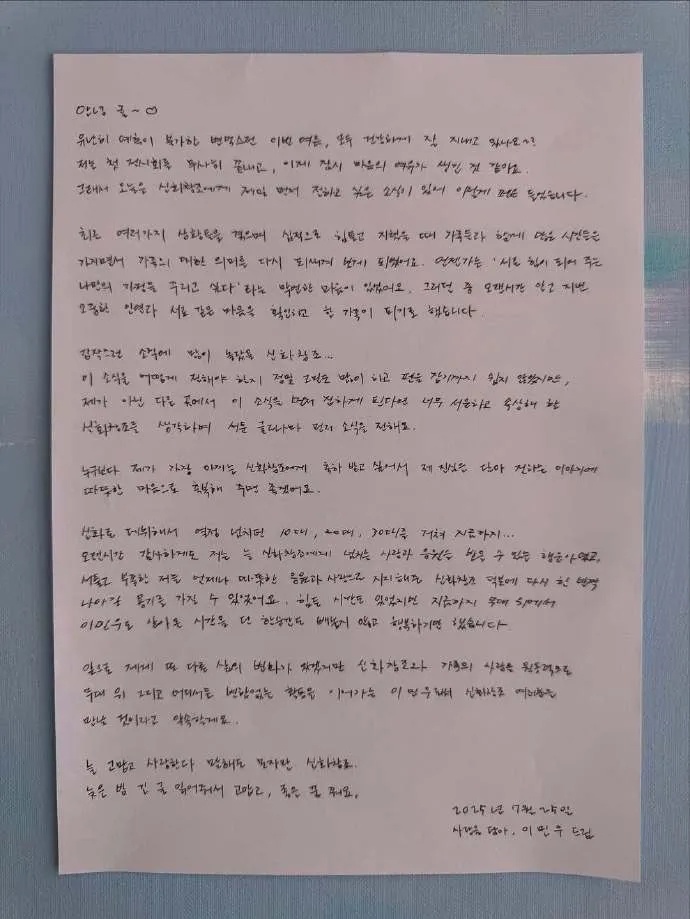 안녕 귤~♡
유난히 예측이 불가한 변덕스런 이번 여름, 모두 건강하게 잘 지내고 있나요~?
저는 첫 전시회를 무사히 끝내고, 이제 잠시 마음의 여유가 생긴 것 같아요.
그래서 오늘은 신화창조에게 제일 먼저 전하고 싶은 소식이 있어 이렇게 펜을 들었습니다.
최근 여러가지 상황들을 겪으며 심적으로 힘들고 지쳤을 때 가족들과 함께 많은 시간들을
가지면서 가족의 대한 의미를 다시 되새기게 되었어요. 언젠가는 '서로 힘이 되어 주는
나만의 가정을 꾸리고 싶다'라는 막연한 마음이 있었어요. 그러던 중 오랜시간 알고 지낸
소중한 인연과 서로 같은 마음을 확인하고 한 가족이 되기로 했습니다.
갑작스런 소식에 많이 놀랐을 신화창조...
이 소식을 어떻게 전해야 할지 정말 고민도 많이 하고 펜을 잡기까지 쉽지 않았지만,
제가 아닌 다른 곳에서 이 소식을 먼저 접하게 된다면 너무 서운하고 속상해 할
신화창조를 생각하며 서툰 글로나마 먼저 소식을 전해요.
누구보다 제가 가장 아끼는 신화창조에게 축하 받고 싶어서 제 진심을 담아 전하는 이야기에
따뜻한 마음으로 축복해 주면 좋겠어요.
신화로 데뷔해서 열정 넘치던 10대, 20대, 30대를 거쳐 지금까지...
오랜시간 감사하게도 저는 늘 신화창조에게 넘치는 사랑과 응원을 받을 수 있는 행운아였고,
서툴고 부족한 저를 언제나 따뜻한 응원과 사랑으로 지지해준 신화창조 덕분에 다시 한 번
나아갈 용기를 가질 수 있었어요. 힘든 시간도 있었지만 지금까지 무대 위에서
이민우로 살아온 시간을 단 한순간도 빼놓지 않고 행복하기만 했습니다.
앞으로 제게 또 다른 삶의 변화가 있겠지만 신화창조와 가족의 사랑을 원동력으로
무대 위 그리고 어디서든 변함없는 활동을 이어가는 이민우로 신화창조 여러분을
만날 것이라고 약속할게요.
늘 고맙고 사랑한다 말해도 모자란 신화창조.
늦은 밤 긴 글 읽어줘서 고맙고, 좋은 꿈 꿔요.
2025년 7월 25일
사랑을 담아, 이민우 드림